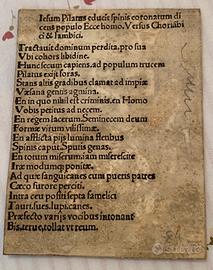 Iesum Pilatus educit spinis coronatum di
cens populo Ecce homo. Versus Choriabi
ci & Iambici.
Tractauit dominum perdita, pro sua
Vbi cohors libidine.
Hunc secum capiens, ad populum trucem
Pilatus exijt foras.
Stans altis gradibus clamat ad impiæ
Væsana gentis agmina.
En in quo nihil est criminis, en Homo
Vobis petitus ad necem.
En regem lacerum. Seminecem deum
Formæ virum vilissimæ.
En afflicta pijs lumina fletibus
Spinis caput, Sputis genas.
En totum miserum, iam miserescite
Iræ modumq; ponite.
Ad quæ sanguicanes cum pueris patres
Cæco furore perciti.
Intra ceu positi septa famelici
Tauri, sues, lupi, canes.
Præfecto varijs vocibus intonant
Bis, terue, tollat vt reum.
subito.it